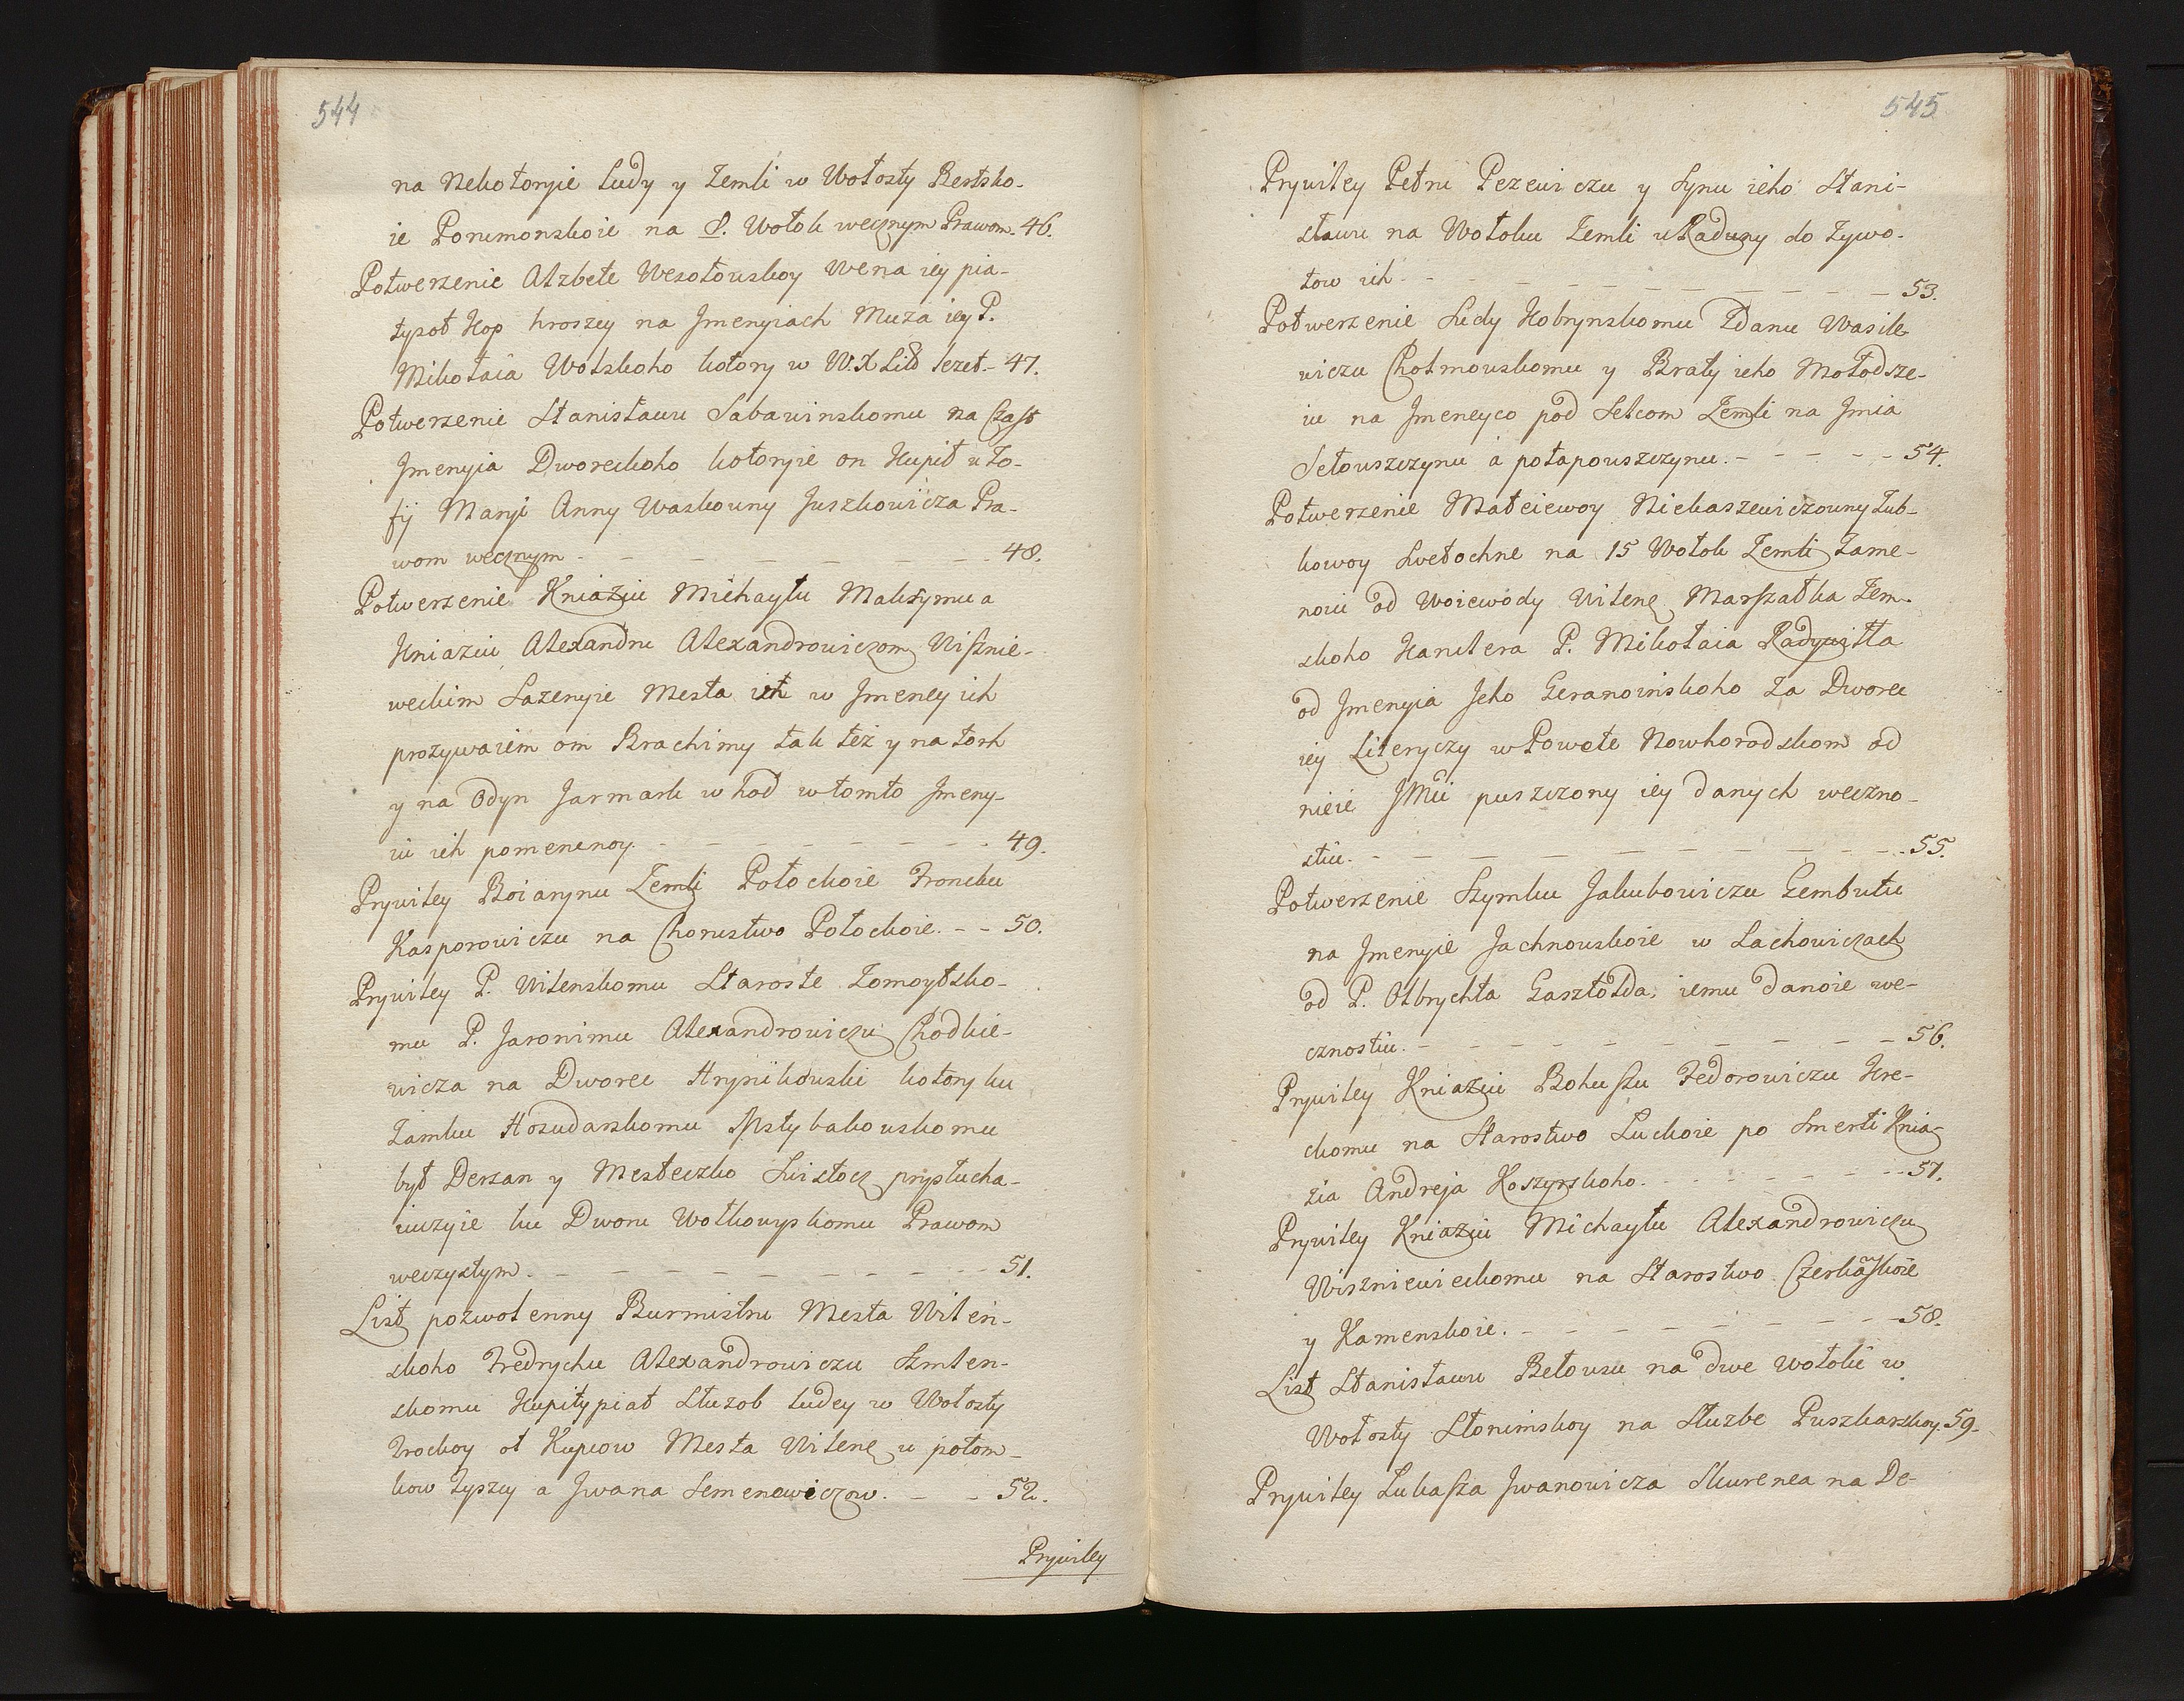 544
na Nekotoryie Ludy y Zemli w Wołosty Bertsko-
ie Ponemonskoie na 8. Wołok wecznym Prawom. 46.
Potwerzenie Alzbete Wesołouskoy Wena iey pia-
tysot Kop hroszey na Jmenyiach Muza iey P.
Mikołaia Wolskoho kotory w W.X Lit lezet. - 47.
Potwerzenie Stanisławu Sabawinskomu na Czast
Jmenyia Dworeckoho kotoryie on Kupił u Zo-
fij Maryi Anny Waskouny Juszkowicza Pra-
wom wecznym - - - - - - 48.
Potwerzenie Kniaziu Michayłu Maksymu a
Kniaziu Alexandru Alexandrowiczom Wisznie-
weckim Sazenyie Mesta ich w Jmeney ich
prozywaiem om Brachimy tak też y na torh
y na Odyn Jarmark w hod w tomto Jmeny-
iu ich pomenenoy. - - - - - - - - 49.
Prywiley Boiarynu Zemli Połockoie Froncku
Kasporowiczu na Chorustwo Połockoie. - - 50.
Prywiley P. Wilenskomu Staroste Zomoytsko-
mu P. Jaronimu Alexandrowiczu Chodkie-
wicza na Dworec Hrynkouski kotory ku
Zamku Hosudarskomu Mstybahouskomu
był Derzan y Mesteczko Swistocz prysłucha-
iuczyie ku Dworu Wołkowyskomu Prawom
weczystym. - - - - - - - - - 51.
List pozwolenny Burmistru Mesta Wilen-
skoho Fredrychu Alexandrowiczu Szmlen-
skomu Kupity piat Słuzob ludey w Wołosty
Trockoy ot Kupcow Mesta Wilene u potom-
kow Zyszcy a Jwana Semenowiczow. - - 52.
Prywiley
545
Prywiley Petru Pezewiczu y Synu ieho Stani-
sławu na Wołoku Zemli u Raduny do Zywo-
tow ich - - - - - - - - - - - 53.
Potwerzenie Sudy Kobrynskomu Zdanu Wasile
wiczu Chotmouskomu y Braty ieho Mołodsze-
iu na Jmeneyco pod Selcom Zemli na Jmia
Sełouszczynu a potapouszczynu. - - - - - 54.
Potwerzenie Mateiewoy Niekaszewiczouny Zub-
kowoy Swetochne na 15 Wołok Zemli Zame-
noiu od Woiewody Wilene Marszałka Zem-
skoho Kanclera P. Mikołaia Radywiłła
od Jmenyia Jeho Geranoinskoho za Dworec
iey Liseryczy w Powete Nowhorodskom od
nieie JMu puszczony iey danych weczno-
stiu. - - - - - - - - - - 55.
Potwerzenie Szymku Jakubowiczu Gembutu
na Jmenyie Jachnouskoie w Lachowiczach
od P. Olbrychta Gasztołda, iemu danoie we-
cznostiu. - - - - - - - - - - 56.
Prywiley Kniaziu Bohuszu Fedorowiczu Kre-
ckomu na Starostwo Luckoie po Smerti Knia-
zia Andreja Koszyrskoho. - - - - - - 57.
Prywiley Kniaziu Michayłu Alexandrowiczu
Wiszniewieckomu na Starostwo Czerkaskoie
y Kamenskoie. - - - - - - - - - 58.
List Stanisławu Bełousu na dwe wołoki w
Wołosty Słonimskoy na Służbe Puszkarskoy. 59.
Prywiley Lukasza Jwanowicza Skurenea na De-